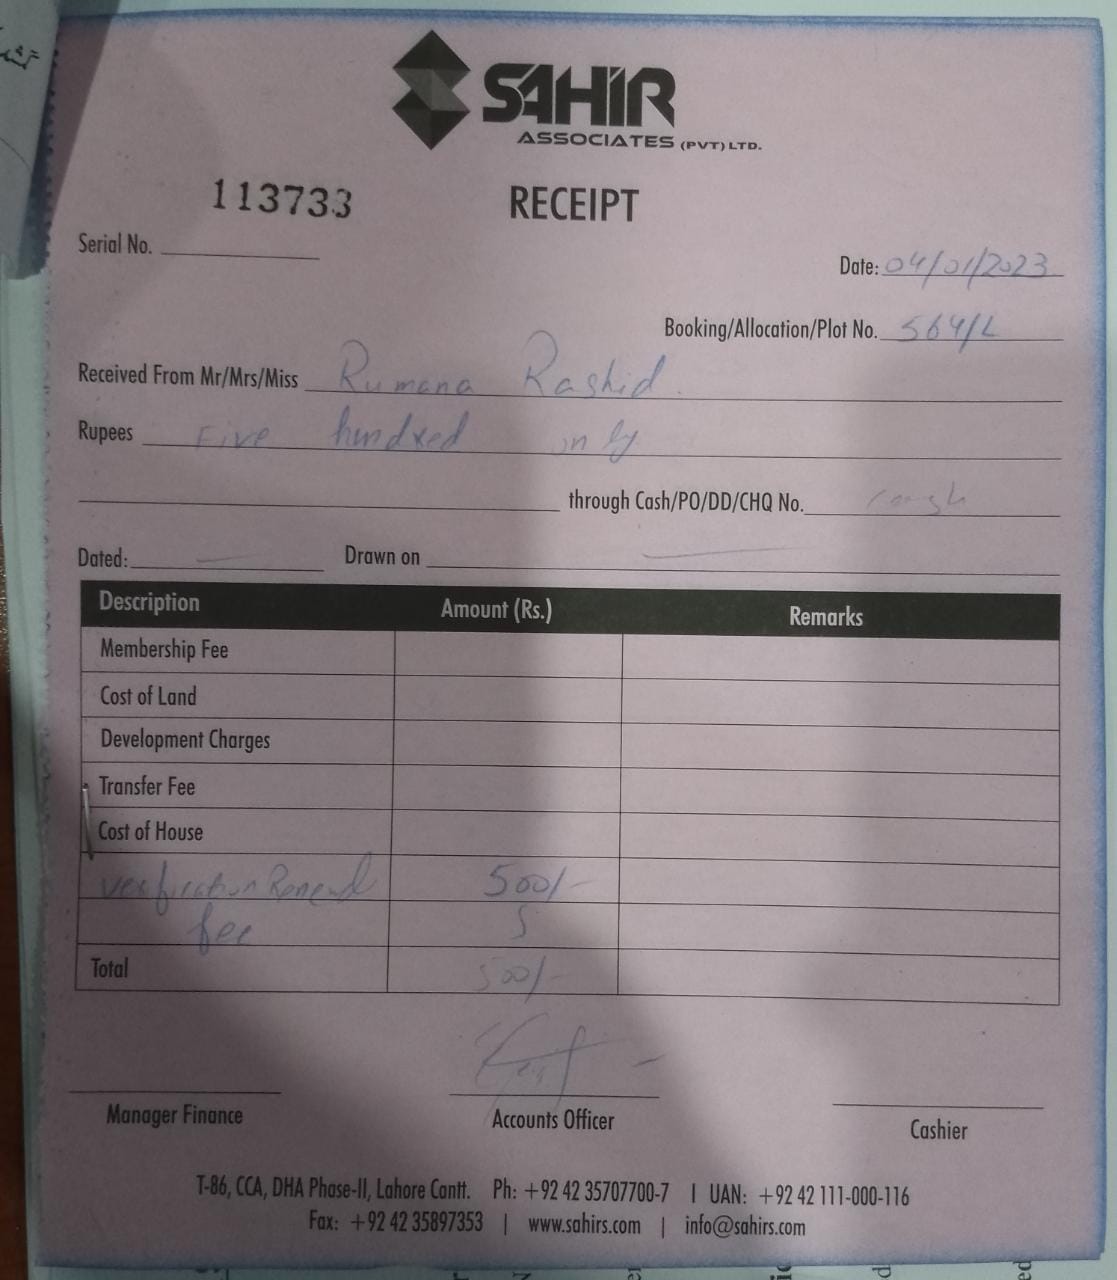 SAHIR
ASSOCIATES (PVT) LTD.
113733
RECEIPT
Serial No.
Date: 04/01/2023
Booking/Allocation/Plot No. 564/L
Received From Mr/Mrs/Miss Rumana Rashid
Rupees Five hundred only
through Cash/PO/DD/CHQ No.
Dated:
Drawn on
Description Amount (Rs.) Remarks
Membership Fee
Cost of Land
Development Charges
Transfer Fee
Cost of House
verification Renewal 500/-
fee
Total 500/-
Manager Finance Accounts Officer Cashier
T-86, CCA, DHA Phase-II, Lahore Cantt. Ph: +92 42 35707700-7 | UAN: +92 42 111-000-116
Fax: +92 42 35897353 | www.sahirs.com | info@sahirs.com